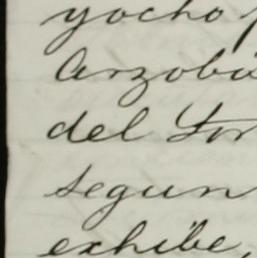 yocho
Arzobis
del Tor
segun
exhibe,